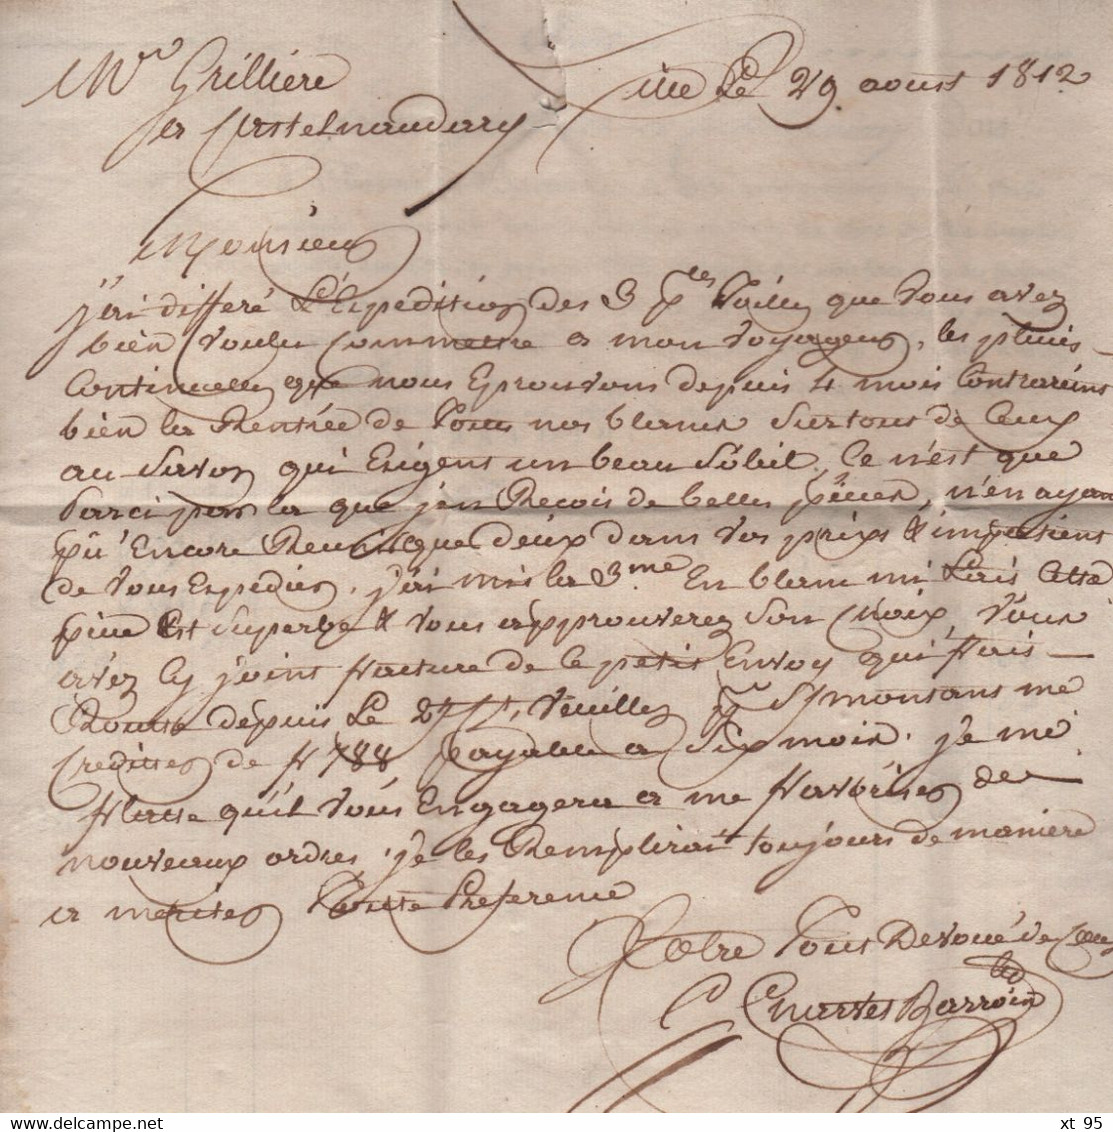 Mr Grilliere Lille Le 29 aoust 1812
a Castelnaudary
Monsieur
j'ai differé L'Expedition des 3 pces Toilles que Vous avez
bien voulu Commettre a mon voyageur, les pluies
Continuelles que nous Eprouvons depuis 4 mois Contrarient
bien la Rentrée de Tous nos blancs Surtous de Ceux
au Savon qui Exigent un beau Soleil. Ce n'est que
Parci par la que j'en Reçois de belles pieces, n'en ayant
pû Encore Reunir que deux dans vos prix & impatient
de vous Expedier, j'ai mis la 3me En blanc mi Lois Cette
piece Est Superbe & vous approuverez Son choix, Vous
avez Cy joint facture de Ce petit Envoy qui fait
Route depuis Le 27 Ct, Veuillez pr S/ montant me
Crediter de f 788 payable a Six mois. je me
flatte qu'il vous Engagera a me favoriser de
nouveaux ordres, je les Remplirai toujours de maniere
a meriter Toutte Preference
Votre Tout Devoué de Coeur
Charles Barrois
xt 95